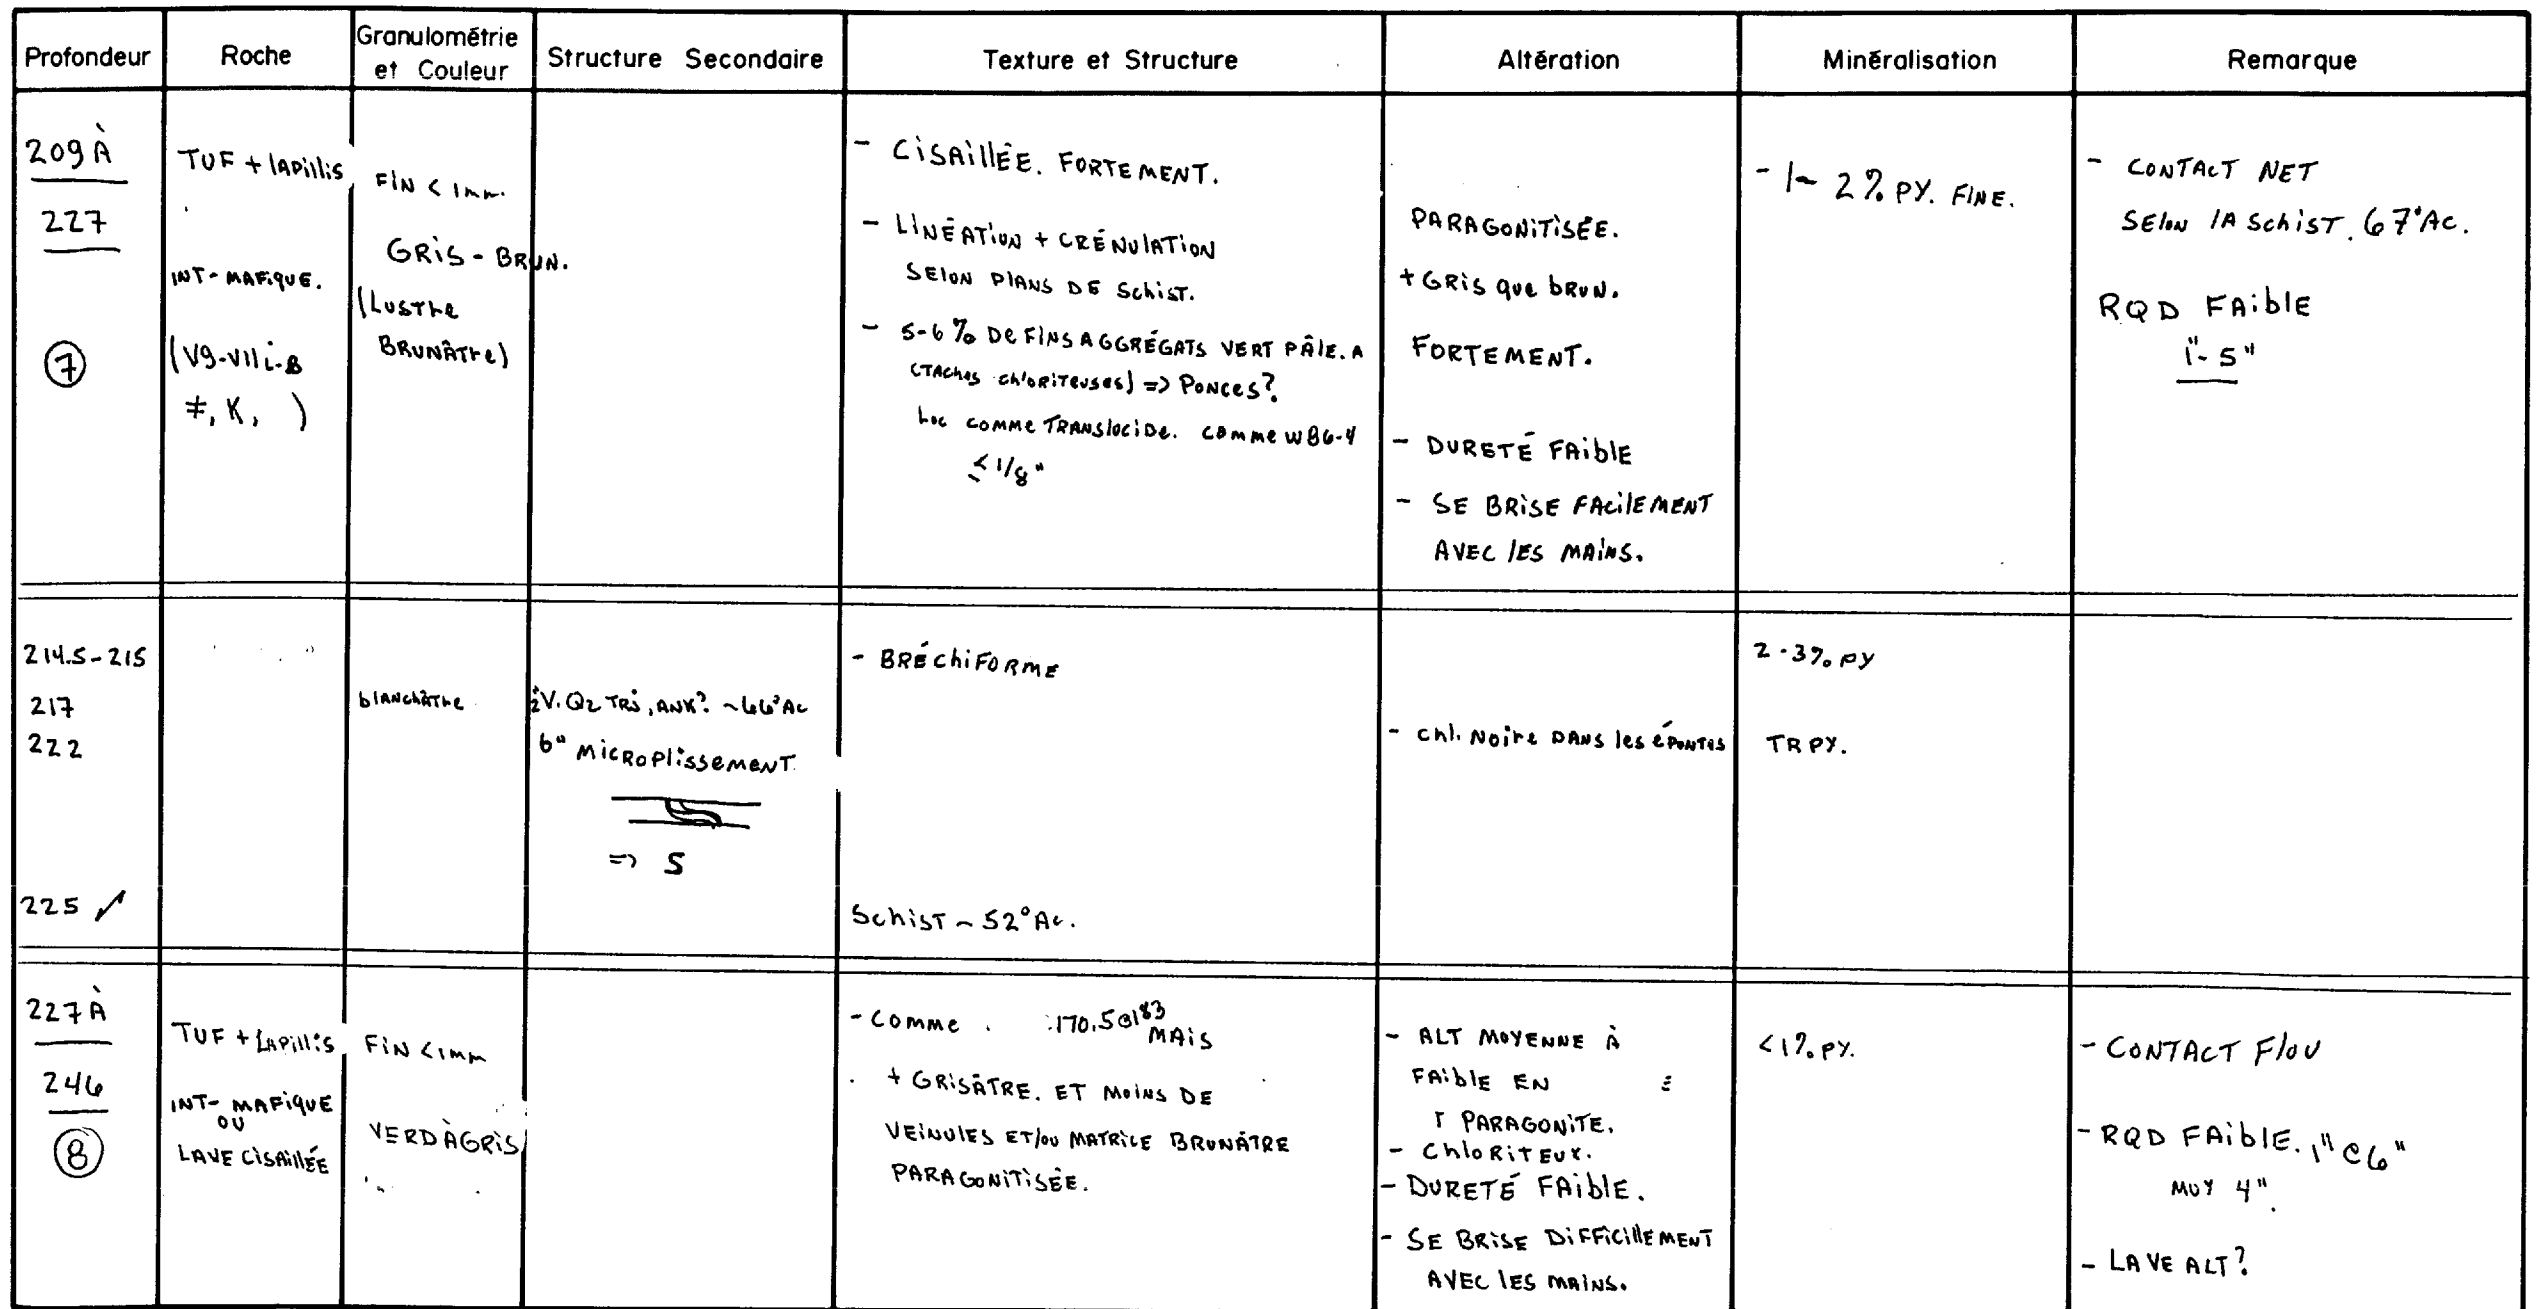 Profondeur
Roche
Granulométrie
et Couleur
Structure Secondaire
Texture et Structure
Altération
Minéralisation
Remarque
209 À
227
7
TUF + lapillis
INT-MAFIQUE.
(V9-V11i-B
≠, K, )
FIN < 1mm.
GRIS-BRUN.
(LUSTRE
BRUNÂTRE)
- CISAILLÉE. FORTEMENT.
- LINÉATION + CRÉNULATION
SELON PLANS DE SCHIST.
- 5-6 % DE FINS AGGRÉGATS VERT PÂLE. A
(TACHES CHLORITEUSES) => PONCES?
COMME TRANSLOCIDE. COMME W86-4
≤ 1/8"
PARAGONITISÉE.
+ GRIS QUE BRUN.
FORTEMENT.
- DURETÉ FAIBLE
- SE BRISE FACILEMENT
AVEC LES MAINS.
- 1~2% PY. FINE.
- CONTACT NET
SELON LA SCHIST. 67°AC.
RQD FAIBLE
1"-5"
214.5-215
- BRÉCHIFORME
2-3% PY
217
BLANCHÂTRE
V. QZ TR, ANK? ~66°AC
222
6" MICROPLISSEMENT
=> S
- CHL. NOIRE DANS LES ÉPONTES
TR PY.
225
SCHIST ~ 52°AC.
227 À
246
8
TUF + LAPILLIS
INT-MAFIQUE
OU
LAVE CISAILLÉE
FIN < 1mm
VERD À GRIS
- COMME 170.5@183
MAIS
+ GRISÂTRE. ET MOINS DE
VEINULES ET/OU MATRICE BRUNÂTRE
PARAGONITISÉE.
- ALT MOYENNE À
FAIBLE EN
PARAGONITE.
- CHLORITEUX.
- DURETÉ FAIBLE.
- SE BRISE DIFFICILLEMENT
AVEC LES MAINS.
<1% PY.
- CONTACT FLOU
- RQD FAIBLE. 1"@6"
MOY 4".
- LAVE ALT?